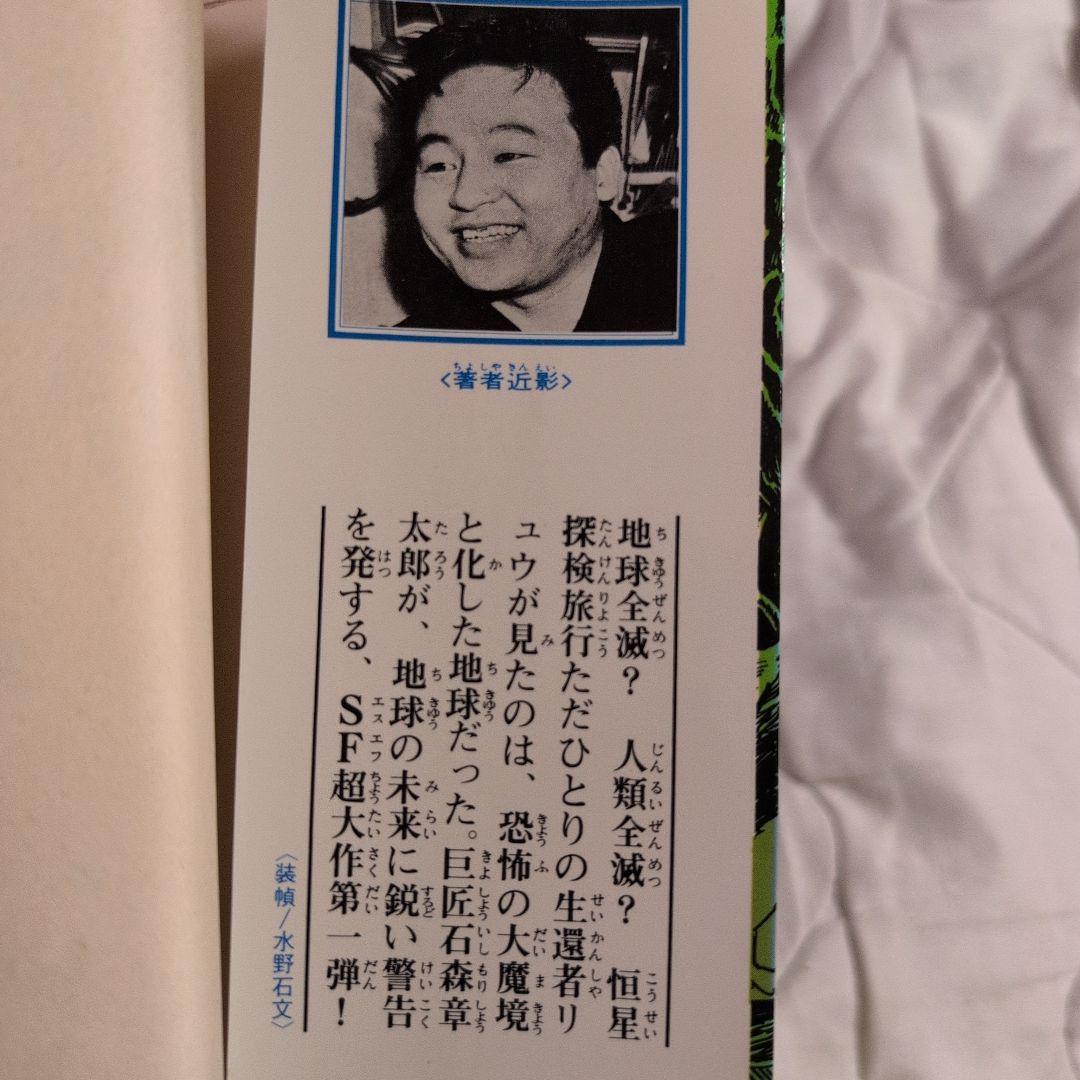 <著者近影>
地球全滅？　人類全滅？　恒星
探検旅行ただひとりの生還者リ
ュウが見たのは、恐怖の大魔境
と化した地球だった。巨匠石森章
太郎が、地球の未来に鋭い警告
を発する、SF超大作第一弾！
〈装幀/水野石文〉